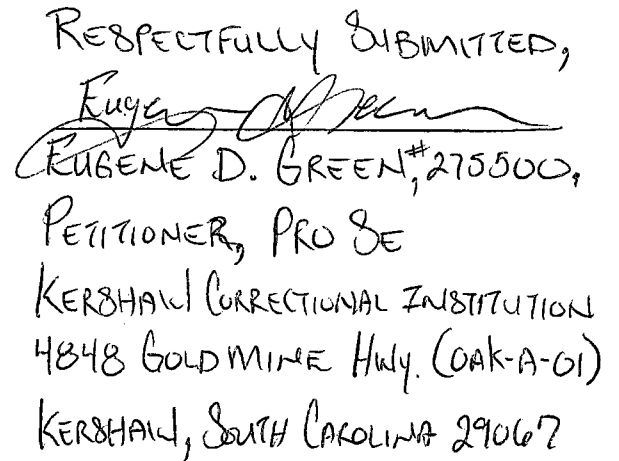 RESPECTFULLY SUBMITTED,
Eugene D. Green
EUGENE D. GREEN, #275500,
PETITIONER, PRO SE
KERSHAW CORRECTIONAL INSTITUTION
4848 GOLD MINE HWY. (OAK-A-01)
KERSHAW, SOUTH CAROLINA 29067